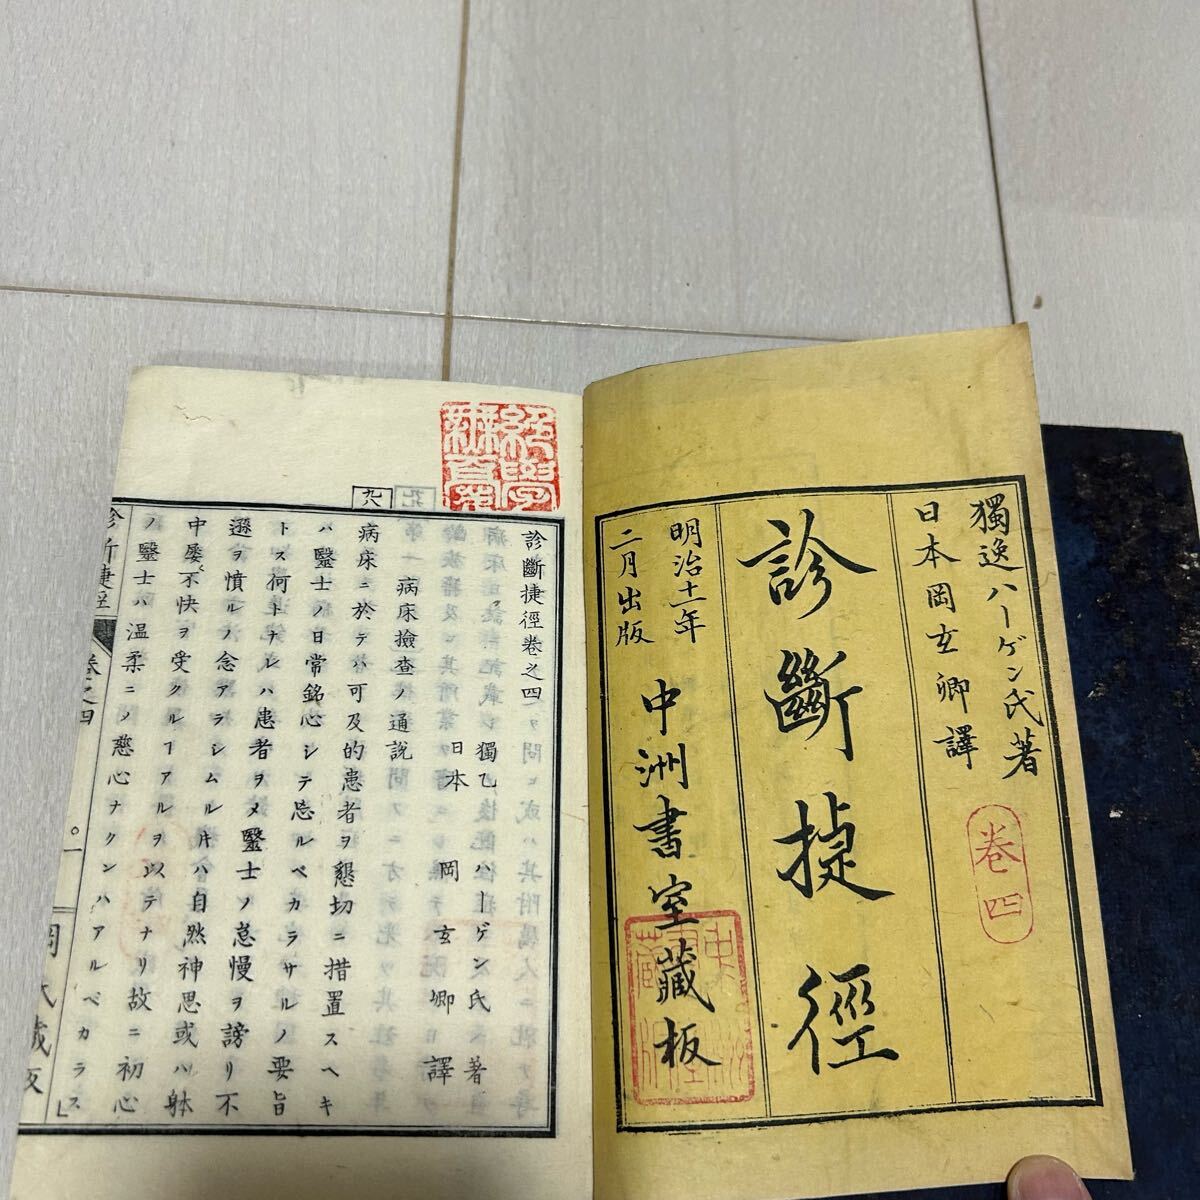 獨逸ハーゲン氏著
日本岡玄卿譯
卷四
診斷捷徑
明治十一年
二月出版
中洲書室藏板
診斷捷徑卷之四
獨乙 ハーゲン氏 著
日本 岡玄卿 譯
病床撿査ノ通説
病床ニ於テハ可及的患者ヲ懇切ニ措置スヘキ
ハ毉士ノ日常銘心シテ怠ルベカラサルノ要旨
トス何トナレハ患者ヲメ毉士ノ怠慢ヲ謗リ不
遜ヲ憤ルノ念アラシムル𪜈ハ自然神思或ハ躰
中屡不快ヲ受クルヿアルヲ以テナリ故ニ初心
ノ毉士ハ温柔ニノ慈心ナクンハアルベカラス
診斷捷徑
卷之四
一
岡氏藏板